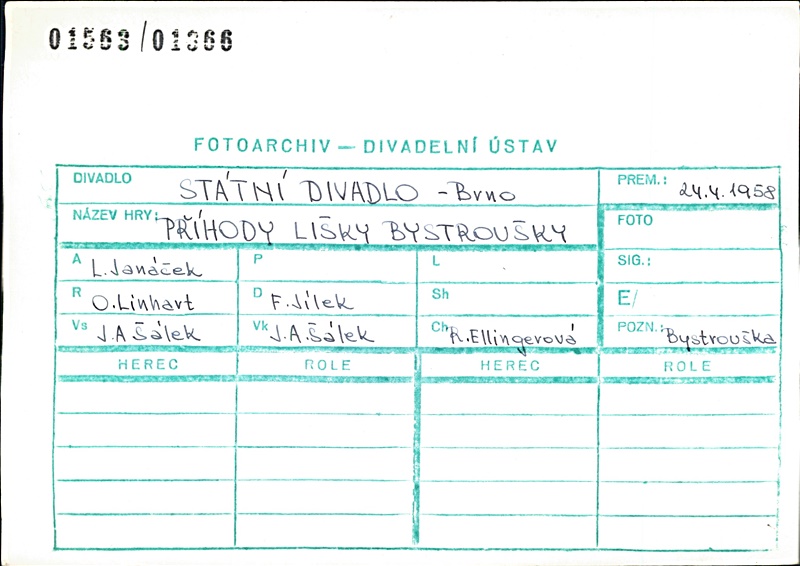 01563/01366
FOTOARCHIV — DIVADELNÍ ÚSTAV
DIVADLO STÁTNÍ DIVADLO - Brno PREM.: 24.4.1958
NÁZEV HRY: PŘÍHODY LIŠKY BYSTROUŠKY FOTO
A L. Janáček P L SIG.:
R O. Linhart D F. Jílek Sh E/
Vs J.A Šálek Vk J.A. Šálek Ch R. Ellingerová POZN.: Bystrouška
HEREC ROLE HEREC ROLE